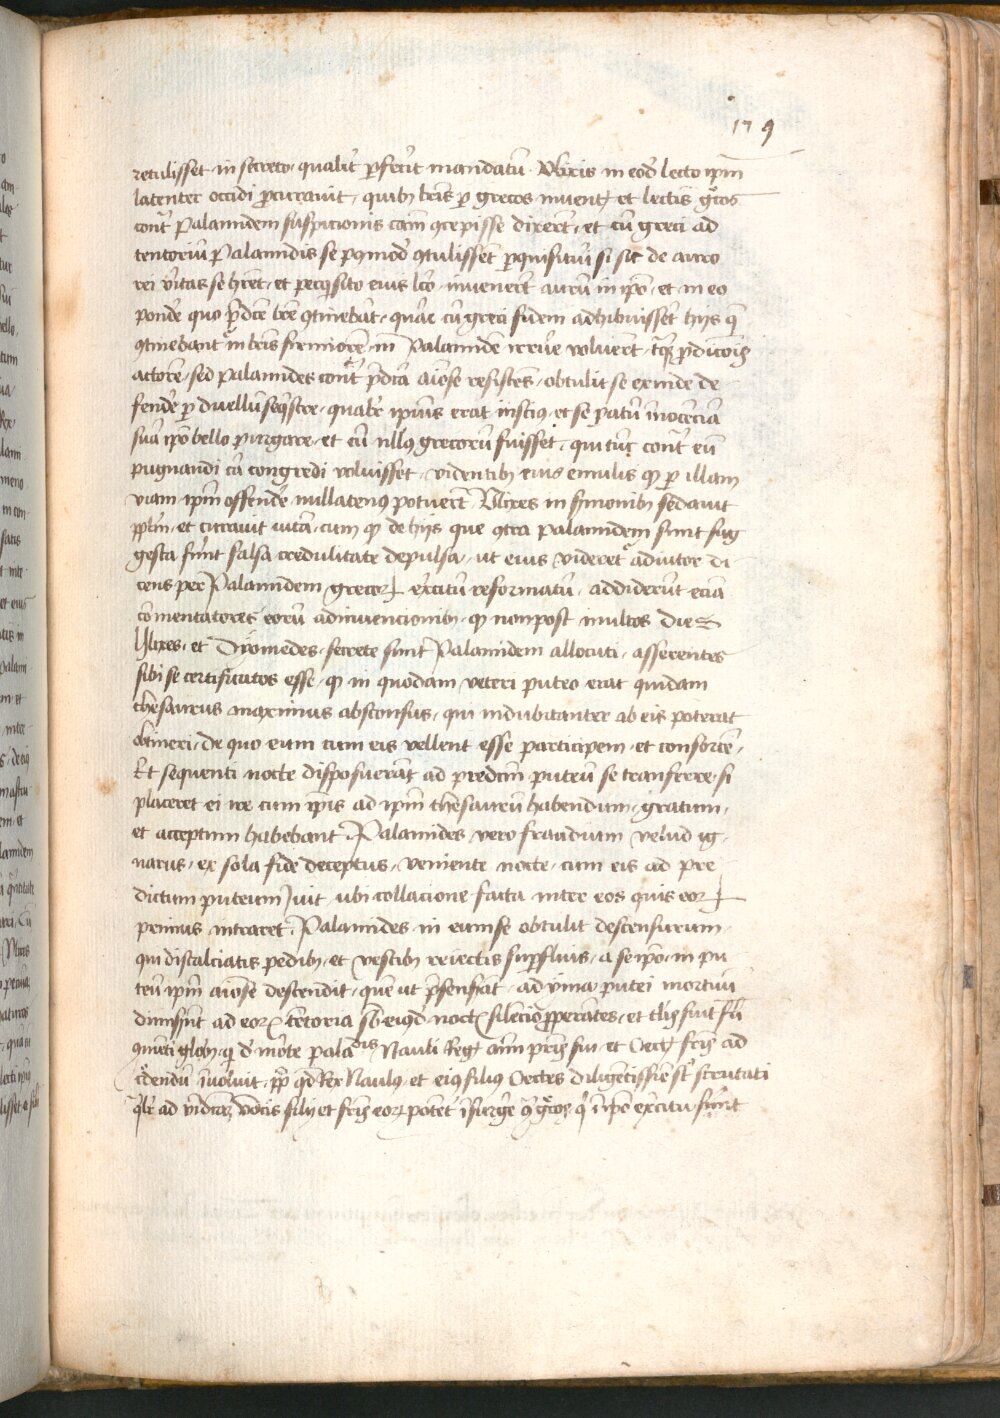 179
retulisset in secreto qualit' p̱fec̄it mandatū Vlixis in eod' lecto ip̄m
latenter occidi p̱curauit, quibȝ lr̄is p̱ grecos inuent' et lectis gͦcos
cont̄ Palamidem suspicionis cām ꝯcepisse dixer̄t, et cū greci ad
tentoriū Palamidis se ꝓqͣmod' ꝯtulissent ꝑquisiturū si sic de auro
rei v'itas se hr̄et, et ꝑecqͥsito eius lc̄o inuener̄t aurū in ip̄o, et in eo
pond'e quo p̄dc̄e lr̄e ꝯtinebāt, quāꝛ cū greci fidem adhibuisset hijs q̄
ꝯtinebant' in lr̄is firmiorē, in Palamide irruē voluer̄t, tqͣꝫ ꝓdic̄ois
actorē, sed Palamides cont̄ p̄dcā aīose resistens, obtulit se exinde de
fend'e ꝑ duellū seqͥstre, quālr̄ ip̄ius erat inscius, et se patū īnocēciā
suā ip̄o bello purgare, et cū nllꝰ grecorū fuisset, qui tūc cont̄ eū
pugnandi cā congredi voluisset, videntibȝ eius emulis qͫ ꝑ illam
viam ip̄m offend'e nullatenꝰ potuer̄t Vlixes in sermonibȝ sedauit
pp̄lm, et curauit iurā, cum qͫ de hijs que ꝯtra Palamidem sunt sug
gesta sūnt falsa credulitate depulsa, ut eius videret' adiutor di
cens per Palamidem grecorꝝ ex̄citū reformatū, addiderūt eciā
com̄entatores eorū adinuencionibȝ, qͫ non post multos dies
Vlixes, et Dyomedes, secrete sunt Palamidem allocuti, asserentes
sibi se certificatos esse, qͫ in quodam veteri puteo erat quidam
thesaurus maximus absconsus, qui indubitanter ab eis poterat
obtineri, de quo eum cum eis vellent esse participem, et consortē,
Et sequenti nocte disposuerāt ad predcm̄ puteū se tranferre, si
placeret ei ire cum ip̄is ad ip̄m thesaurū habendum, gratum,
et acceptum habebant Palamides vero fraudium velud ig-
narus, ex sola fide deceptus, veniente nocte, cum eis ad pre
dictum puteum iuit ubi collacione facta inter eos quis eorꝝ
primus intraret, Palamides in eum se obtulit descensurum,
qui discalciatis pedibȝ, et vestibȝ reiectis suꝑfluis, a se ip̄o, in pu
teū ip̄m aīose descendit, quē ut p̄senserāt, ad yma putei mortuū
dimisīnt ad eorꝝ tētoria sb eiꝰd' noctꝭ silēcio ꝓperātes, et
 Palamidis Nauli Regꝭ
 Rex Naulꝰ, et eiꝰ filiꝰ Oectes diligētissīe st' scrutati